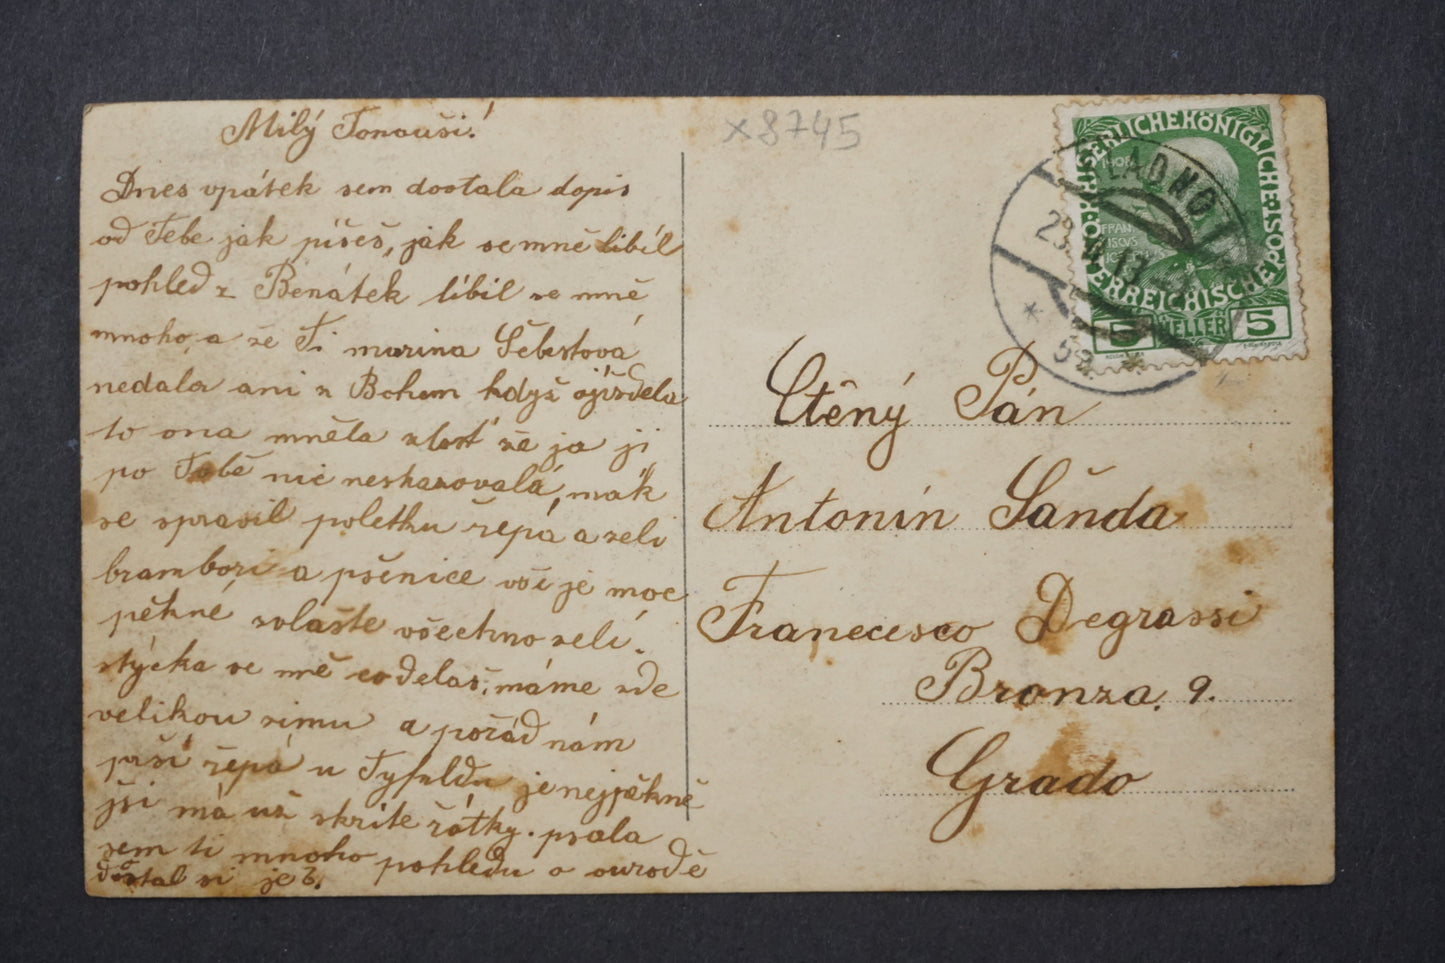 Milý Tonouši!
Dnes vpátek sem dostala dopis
od Tebe jak píšeš, jak se mně libíl
pohled z Benátek líbil se mně
mnoho, a že Ti marina Šebestová
nedala ani z Bohem když ojížděla
to ona mněla zlost že ja ji
po Tobě nic neskazovalá, mák
se spravil poletku řepá a zeli
brambori a pšenice vší je moc
pěkné, zvlašte všechno zelí.
stýcka se mě co delaš, máme zde
velikou zimu a pořád nám
prší řepá u Tyfuldu je nejpěkně
jši má už skrite řátky. psala
sem ti mnoho pohledu o ourodě
dostal si je?
×8745
KAISERLICHE KÖNIGLICHE ÖSTERREICHISCHE POST
1908
FRAN
CISCVS
5 HELLER 5
KLADNO
23. 13
5a
Ctěný Pán
Antonín Šanda
Francecsco Degrassi
Bronza. 9.
Grado